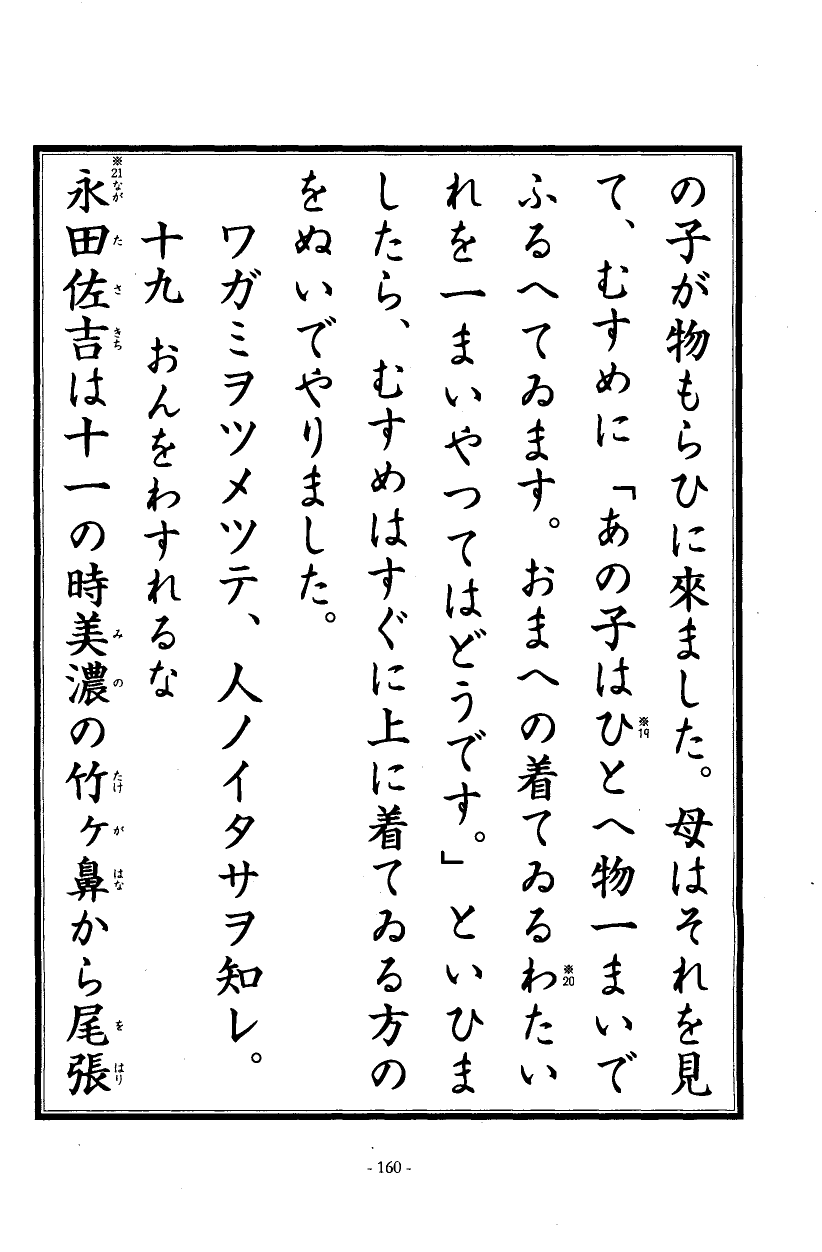 の子が物もらひに來ました。母はそれを見
て、むすめに「あの子は※19ひとへ物一まいで
ふるへてゐます。おまへの着てゐる※20わたい
れを一まいやつてはどうです。」といひま
したら、むすめはすぐに上に着てゐる方の
をぬいでやりました。
ワガミヲツメツテ、人ノイタサヲ知レ。
十九 おんをわすれるな
※21永田佐吉は十一の時美濃の竹ヶ鼻から尾張
なが た さ きち み の たけ が はな を はり
- 160 -